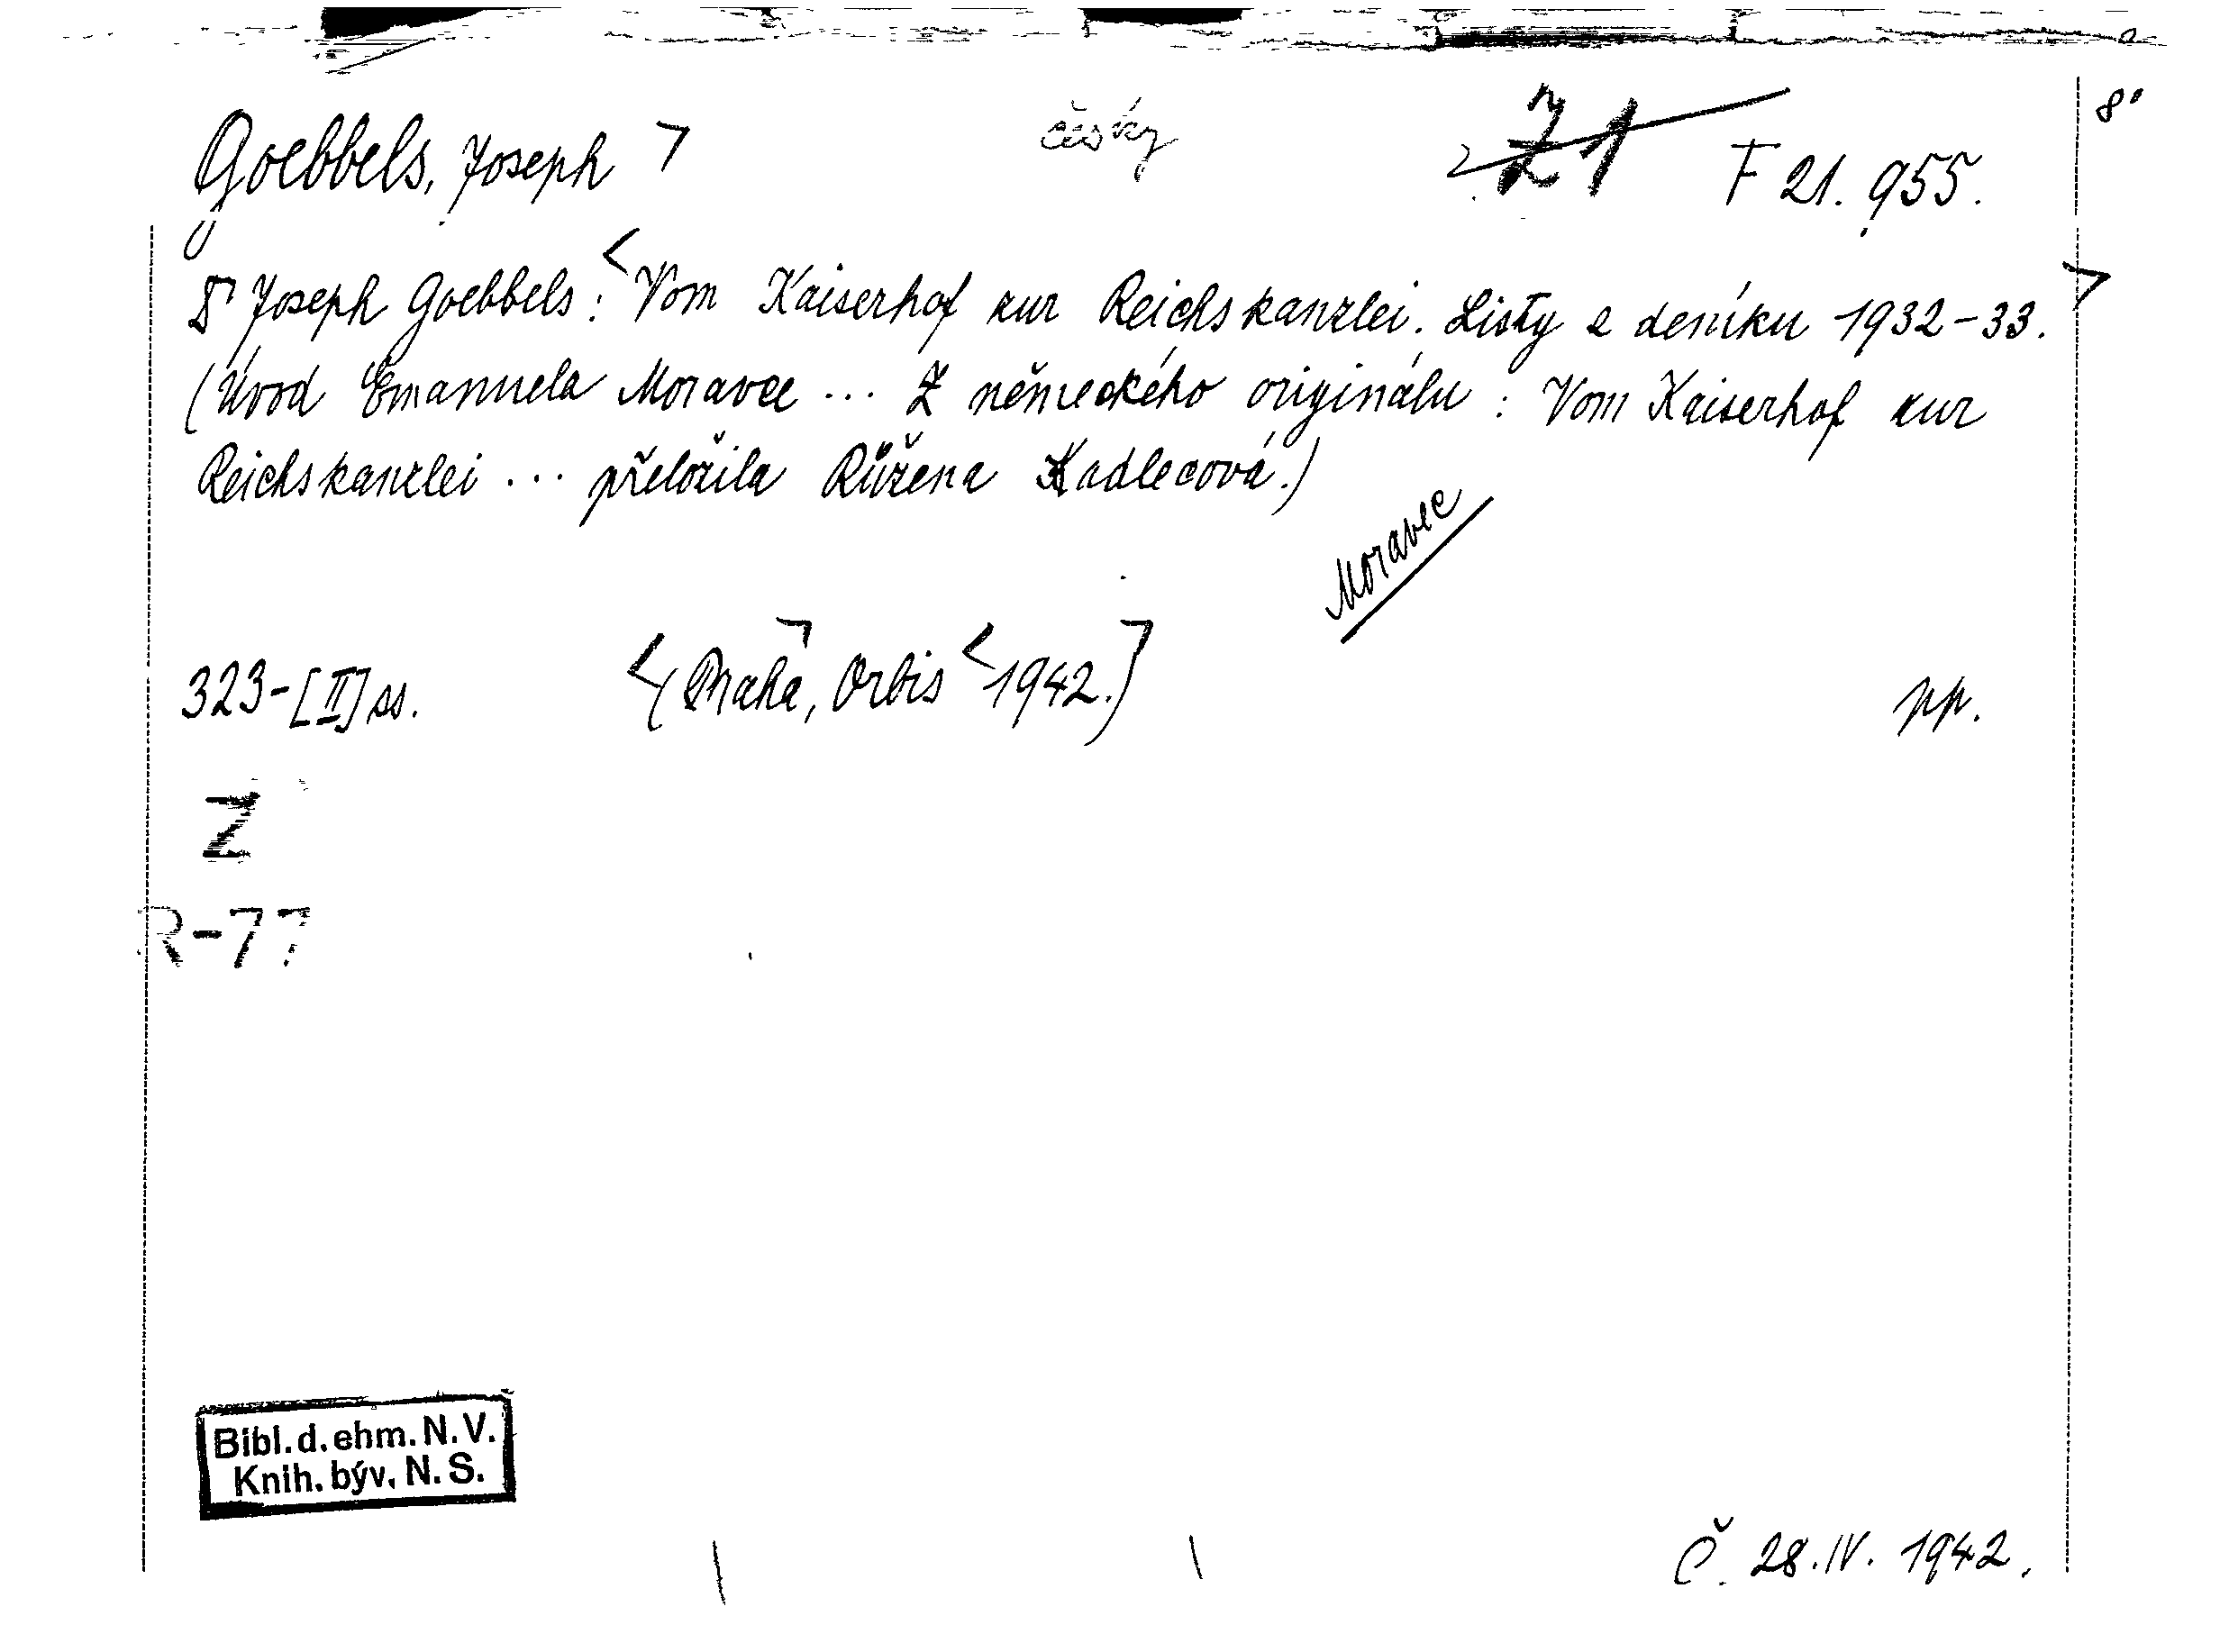 Goebbels, Joseph česky Z1 F 21.955. 8°
Joseph Goebbels: Vom Kaiserhof zur Reichskanzlei. Listy z deníku 1932-33.
(Úvod Emanuela Moravce ... Z německého originálu: Vom Kaiserhof zur
Reichskanzlei ... přeložila Růžena Kadlecová.)
Moravec
323-[II] ss. (Praha, Orbis 1942.) pp.
Z
R-77
Bibl. d. ehm. N. V.
Knih. býv. N. S.
Č. 28.IV. 1942.